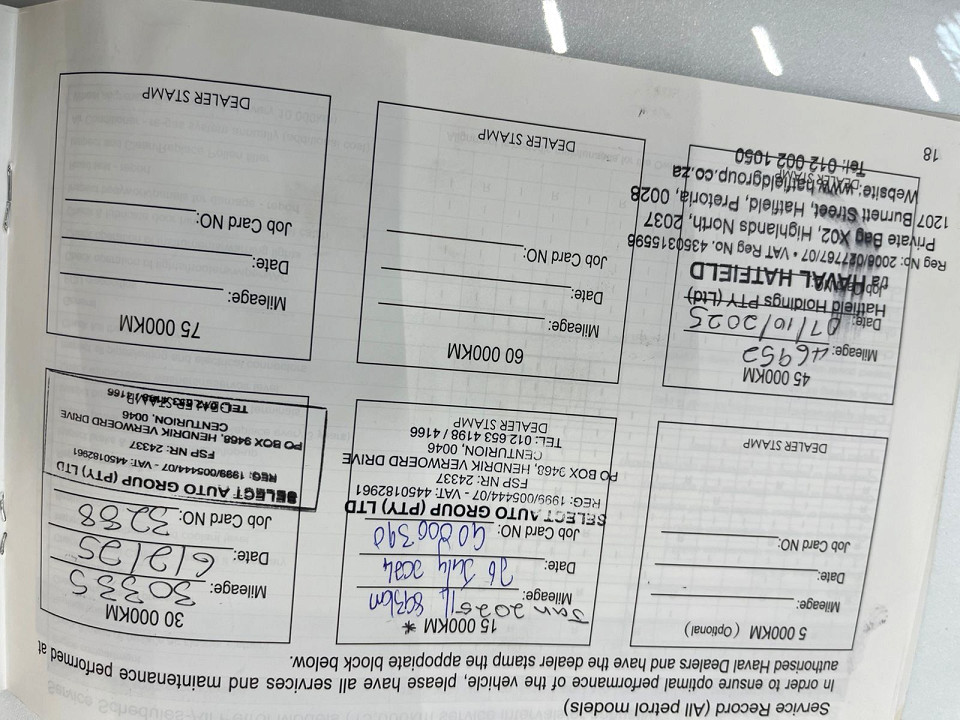 Service Record (All petrol models)
In order to ensure optimal performance of the vehicle, please have all services and maintenance performed at
authorised Haval Dealers and have the dealer stamp the appopiate block below.
5 000KM ( Optional)
Mileage:
Date:
Job Card NO:
DEALER STAMP
15 000KM *
Jan 2025
Mileage: 11 893km
Date: 26 July 2024
Job Card NO:
SELECT AUTO GROUP (PTY) LTD
REG: 1999/005444/07 - VAT: 4450182961
FSP NR: 24337
PO BOX 9468, HENDRIK VERWOERD DRIVE
CENTURION, 0046
TEL: 012 653 4198 / 4166
DEALER STAMP
30 000KM
Mileage: 30335
Date: 6/2/25
Job Card NO: 3288
SELECT AUTO GROUP (PTY) LTD
REG: 1999/005444/07 - VAT: 4450182961
FSP NR: 24337
PO BOX 9468, HENDRIK VERWOERD DRIVE
CENTURION, 0046
DEALER STAMP
45 000KM
Mileage: 46952
Date: 07/10/2025
Hatfield Holdings PTY (Ltd)
Job Card NO:
t/a HAVAL HATFIELD
Reg No: 2006/027767/07 • VAT Reg No. 4350315596
Private Bag X02, Highlands North, 2037
1207 Burnett Street, Hatfield, Pretoria, 0028
Website: www.hatfieldgroup.co.za
DEALER STAMP
Tel: 012 002 1050
60 000KM
Mileage:
Date:
Job Card NO:
DEALER STAMP
75 000KM
Mileage:
Date:
Job Card NO:
DEALER STAMP
18